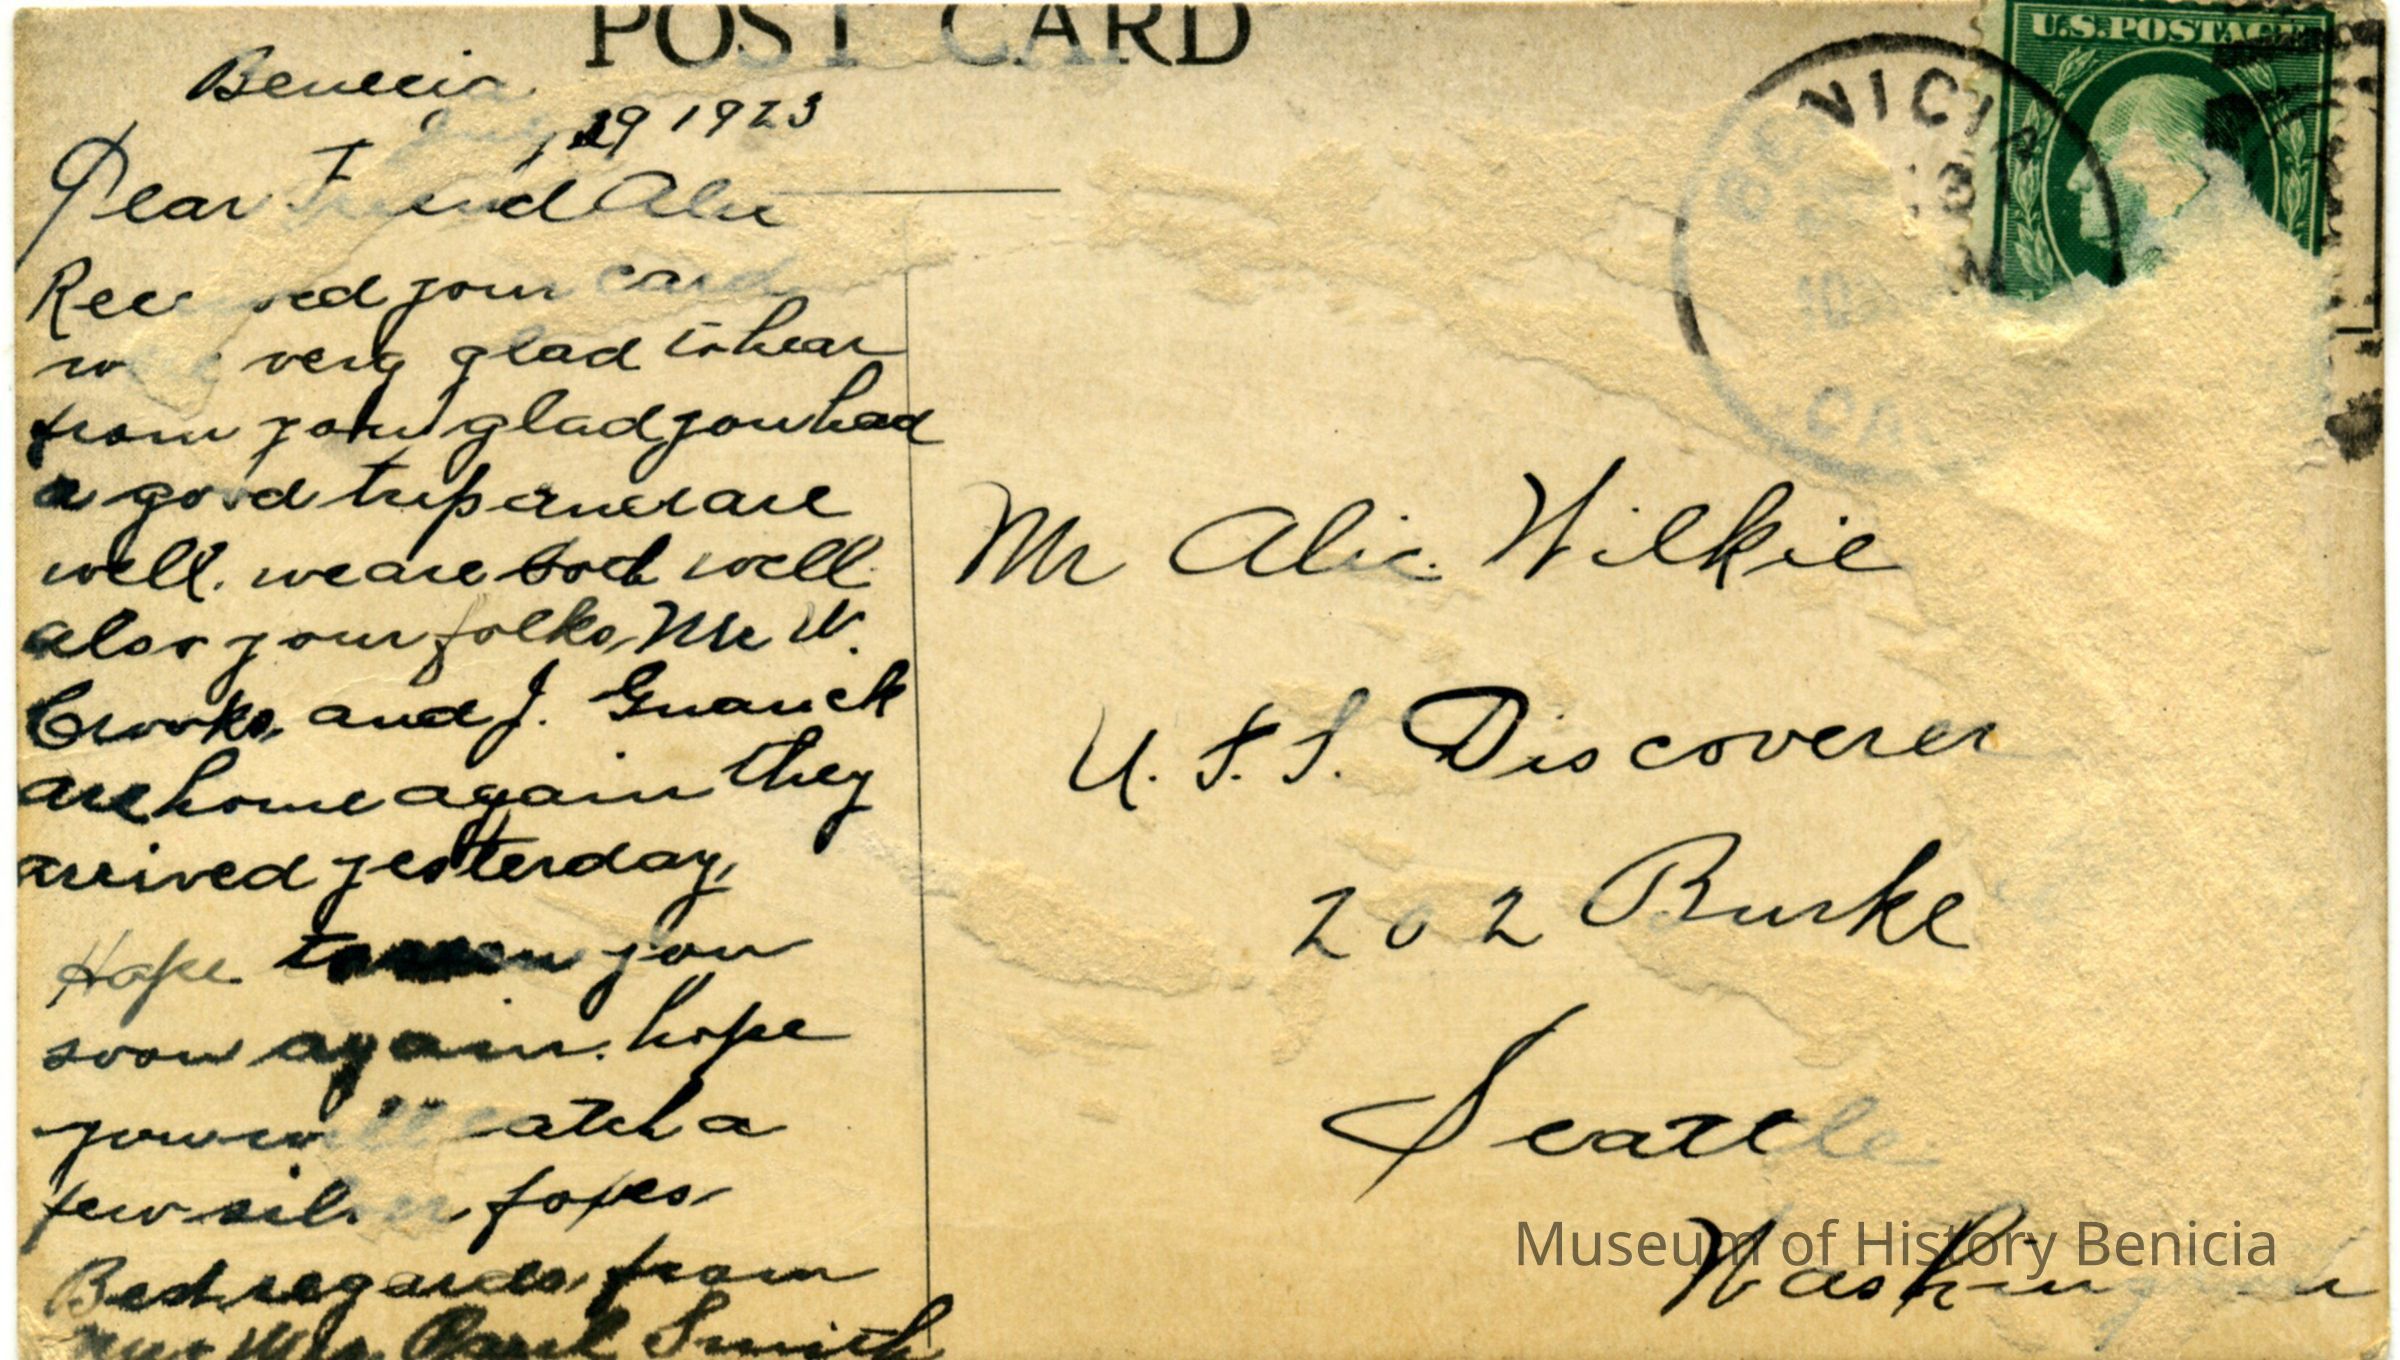 POST CARD
Benecia
29 1923
Dear Friend Alic
Received your card
was very glad to hear
from you glad you had
a good trip and are
well. we are both well
also your folks, Mr W.
Crooks, and J.
are home again they
arrived yesterday,
Hope to you
soon again. hope
you will catch a
few silver foxes
Best regards from
Mr & Mrs Paul Smith
U.S. POSTAGE
BENICIA
CAL
Mr Alic. Wilkie
U. S. S. Discoverer
202 Burke
Seattle
Washington
Museum of History Benicia